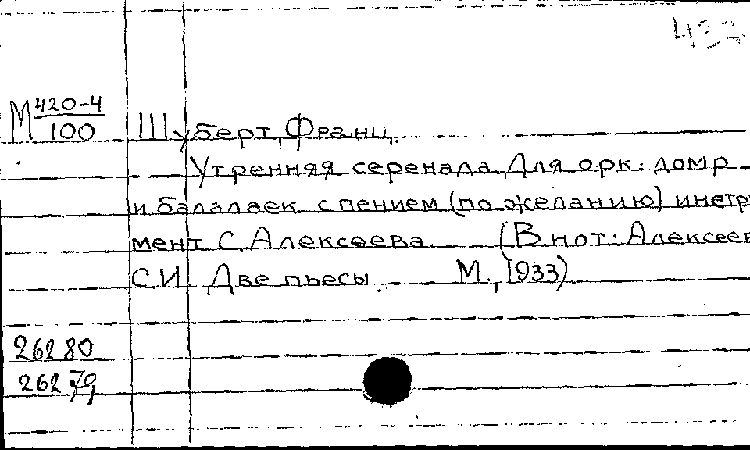 М 420-4
100
Шуберт, Франц.
Утренняя серенада. Для орк. домр
и балалаек с пением (по желанию) инстр
мент. С. Алексеева (В нот: Алексеев
С.И. Две пьесы. М., 1933)
26280
26279